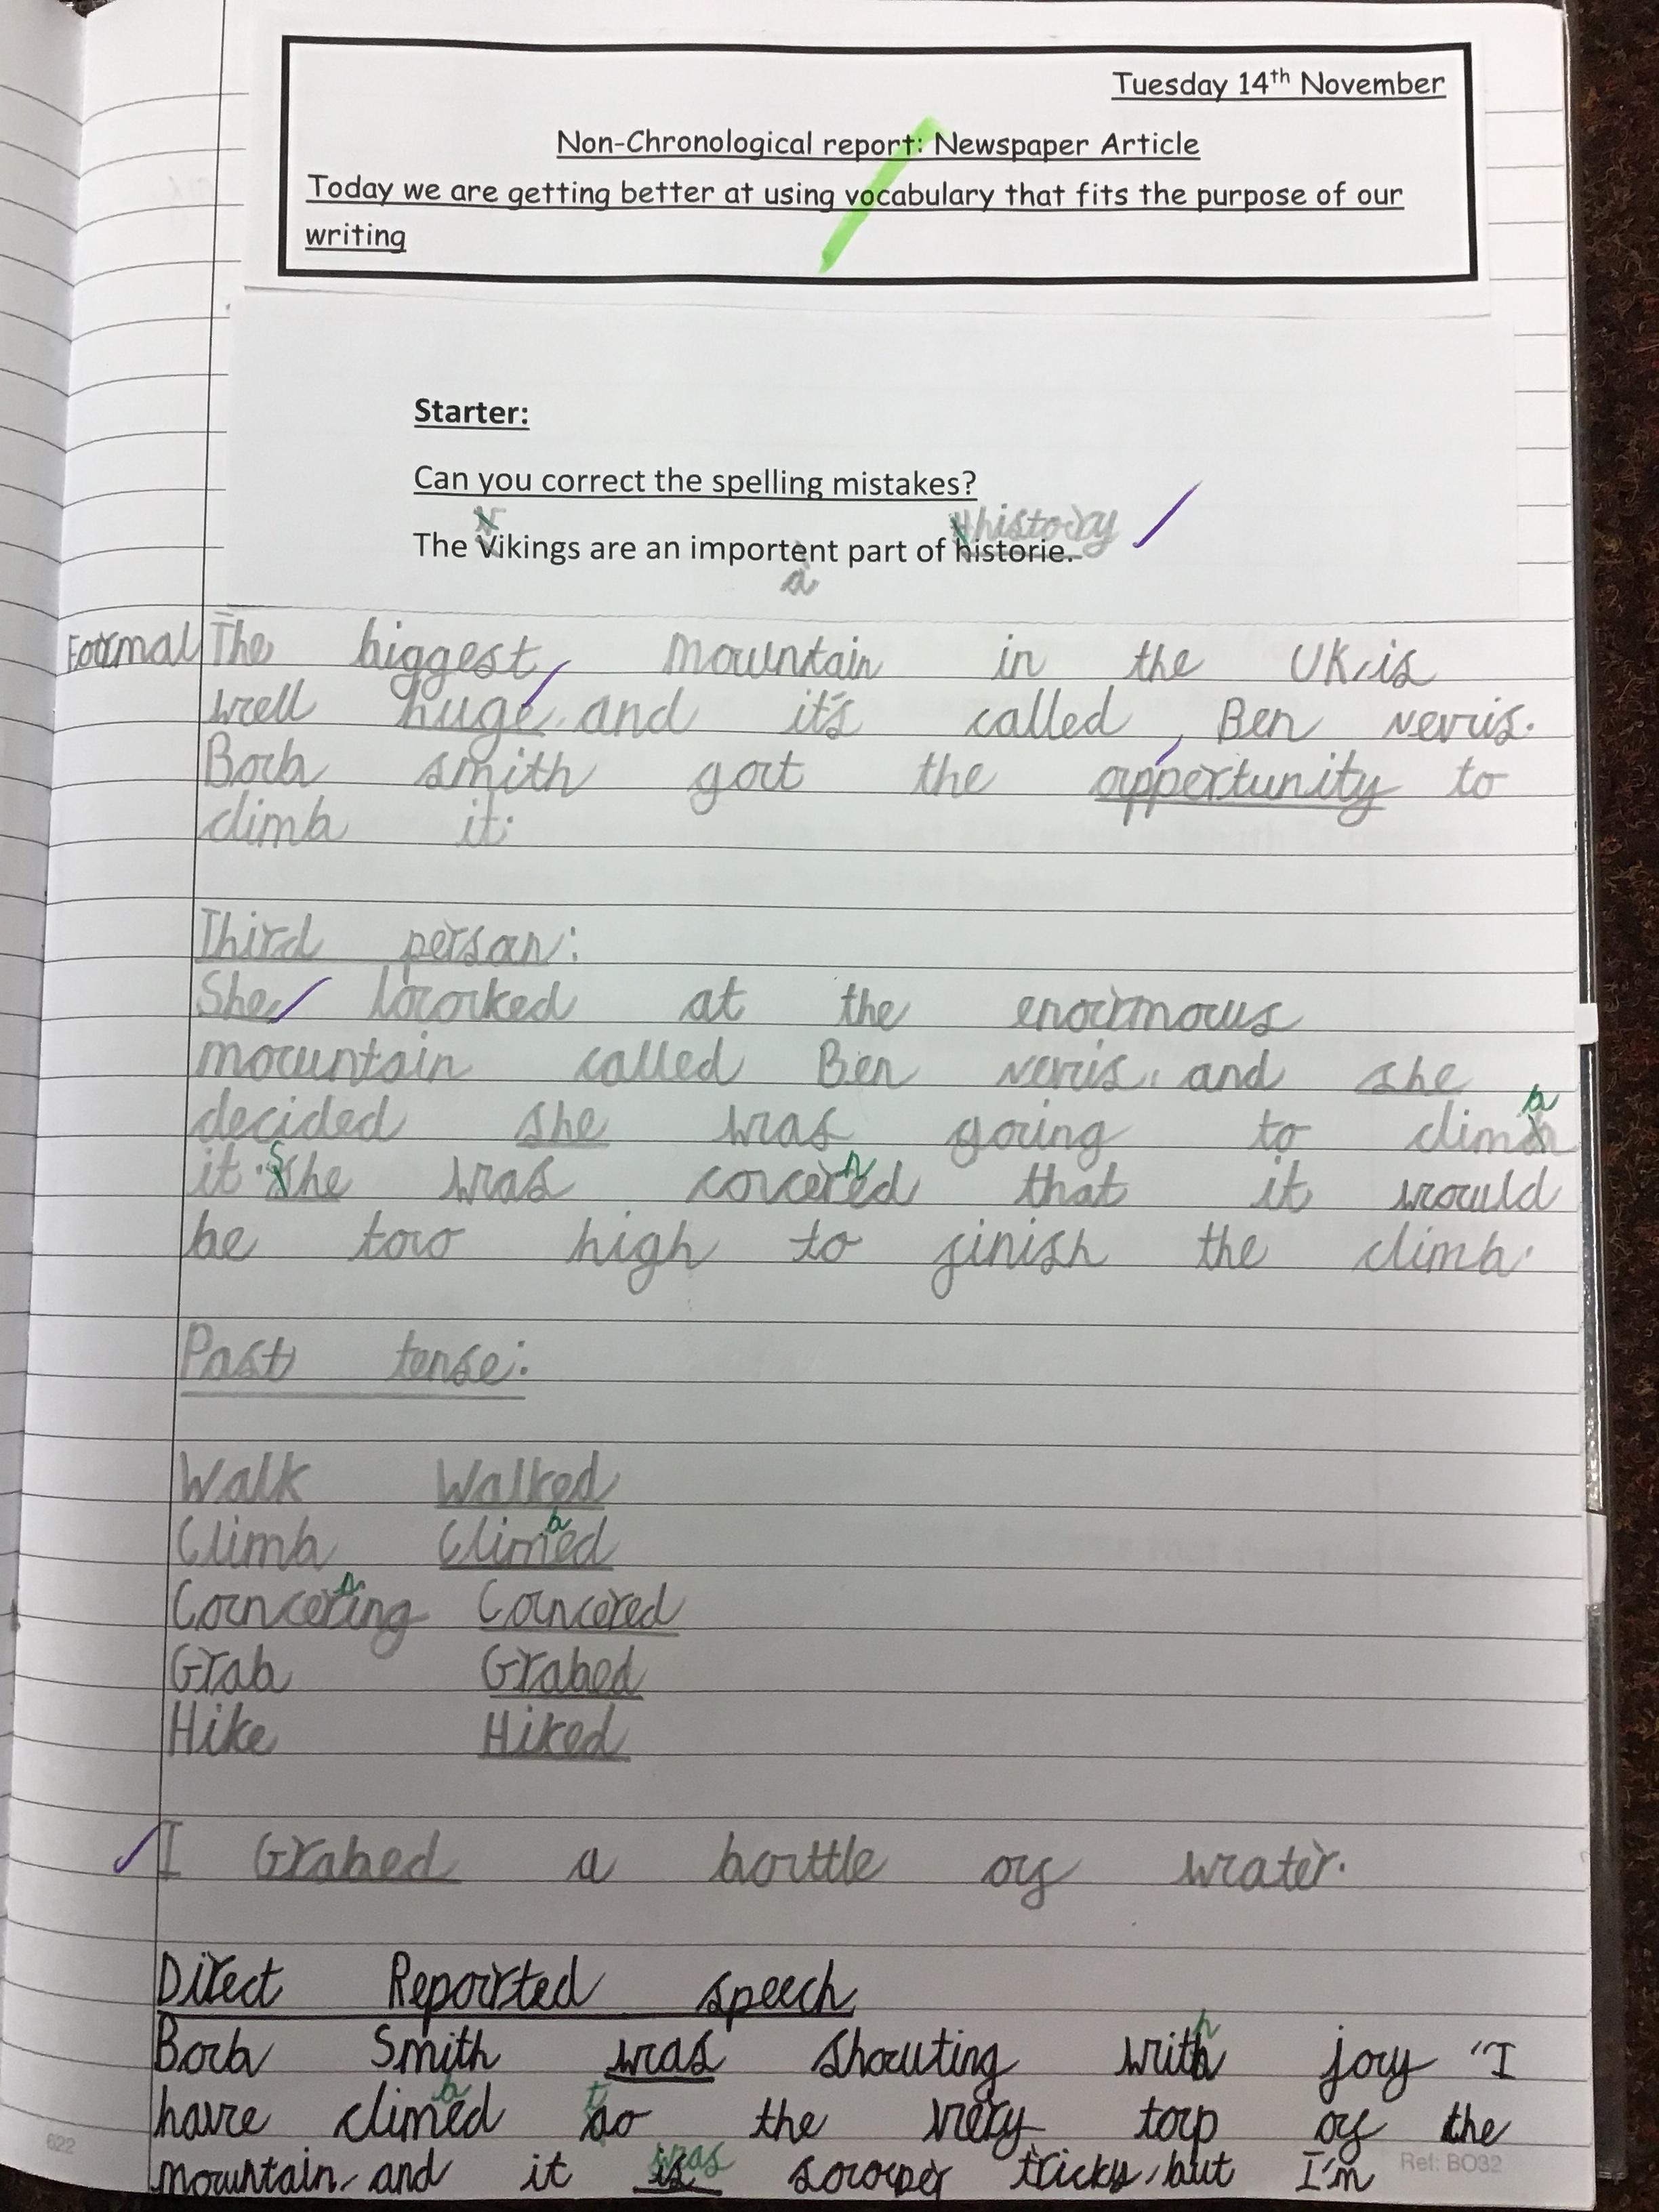 Tuesday 14th November
Non-Chronological report: Newspaper Article
Today we are getting better at using vocabulary that fits the purpose of our
writing
Starter:
Can you correct the spelling mistakes?
history
The Vikings are an importent part of historie.
a
Formal The biggest mountain in the UK, is
well huge, and it's called, Ben nevis.
Bob smith got the oppertunity to
climb it.
Third person:
She looked at the enormous
mountain called Ben nevis, and she
decided she was going to climb
it. She was concernd that it would
be too high to finish the climb.
Past tense:
Walk Walked
Climb Climbed
Concerning Concered
Grab Grabed
Hike Hiked
I Grabed a bottle of water.
Direct Reported speech
Bob Smith was shouting with joy "I
have climbed to the very top of the
was
mountain, and it is tricky, but I'm
622
Ref: BO32